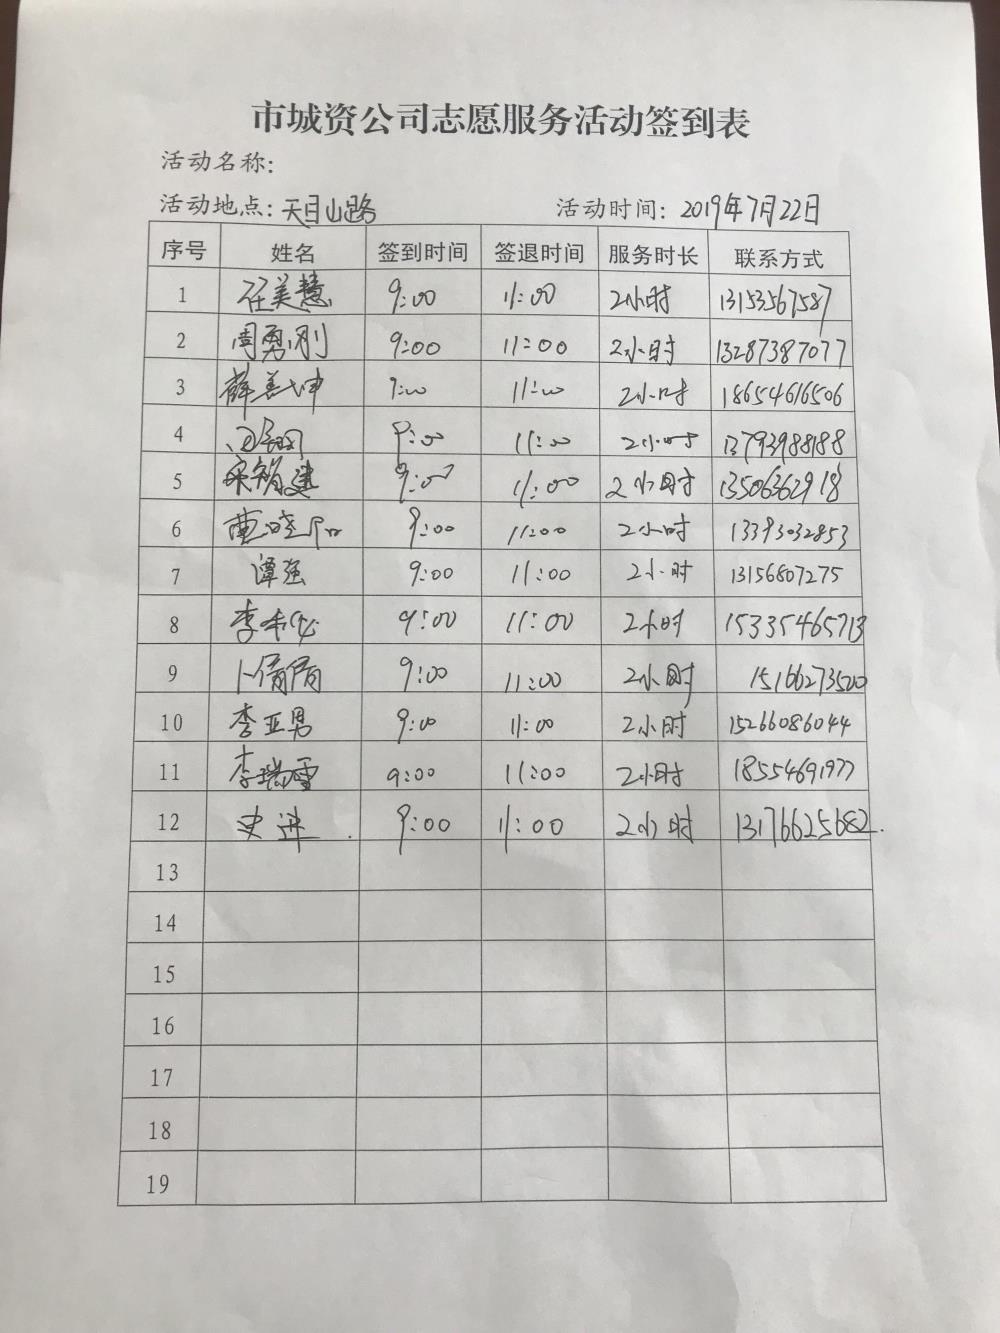 市城资公司志愿服务活动签到表
活动名称:
活动地点: 天目山路 活动时间: 2019年7月22日
序号 姓名 签到时间 签退时间 服务时长 联系方式
1 任美慧 9:00 11:00 2小时 13153567587
2 周勇刚 9:00 11:00 2小时 13287387077
3 薛善坤 9:00 11:00 2小时 18654616506
4 9:00 11:00 2小时 13793988188
5 9:00 11:00 2小时 13506362918
6 曹晓 9:00 11:00 2小时 13393032853
7 谭强 9:00 11:00 2小时 13156807275
8 李 9:00 11:00 2小时 15335465713
9 卜倩倩 9:00 11:00 2小时 15166273520
10 李亚男 9:00 11:00 2小时 15266086044
11 李瑞雪 9:00 11:00 2小时 18554691977
12 史进 9:00 11:00 2小时 13176625682
13
14
15
16
17
18
19